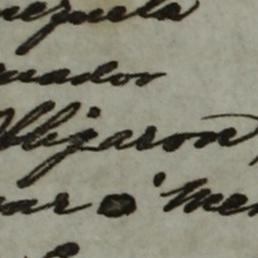 nezuela
uador
bligaron
ar o' men